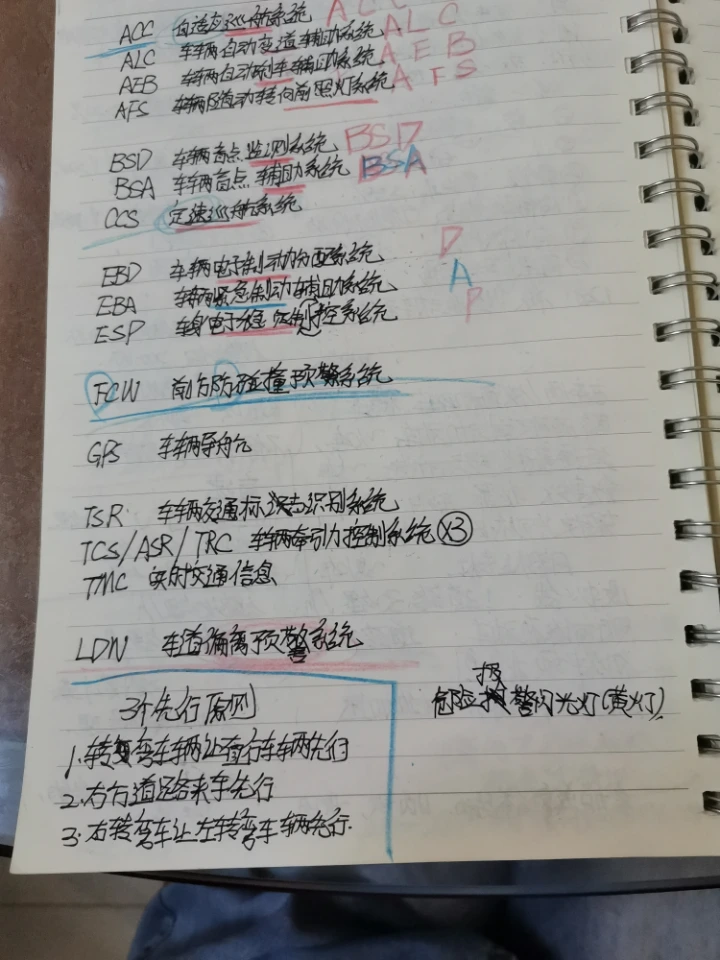 ACC 自适应巡航系统 ACC
ALC 车辆自动变道辅助系统 ALC
AEB 车辆自动刹车辅助系统 AEB
AFS 车辆随动转向前照灯系统 AFS
BSD 车辆盲点监测系统 BSD
BSA 车辆盲点辅助系统 BSA
CCS 定速巡航系统
EBD 车辆电子制动力分配系统 D
EBA 车辆紧急制动辅助系统 A
ESP 车身电子稳定控制系统 P
FCW 前方防碰撞预警系统
GPS 车辆导航
TSR 车辆交通标志识别系统
TCS/ASR/TRC 车辆牵引力控制系统 ×3
TMC 实时交通信息
LDW 车道偏离预警系统
3个先行原则
1.转弯车辆让直行车辆先行
2.右方道路来车先行
3.右转弯车让左转弯车辆先行.
危险报警闪光灯(黄灯)